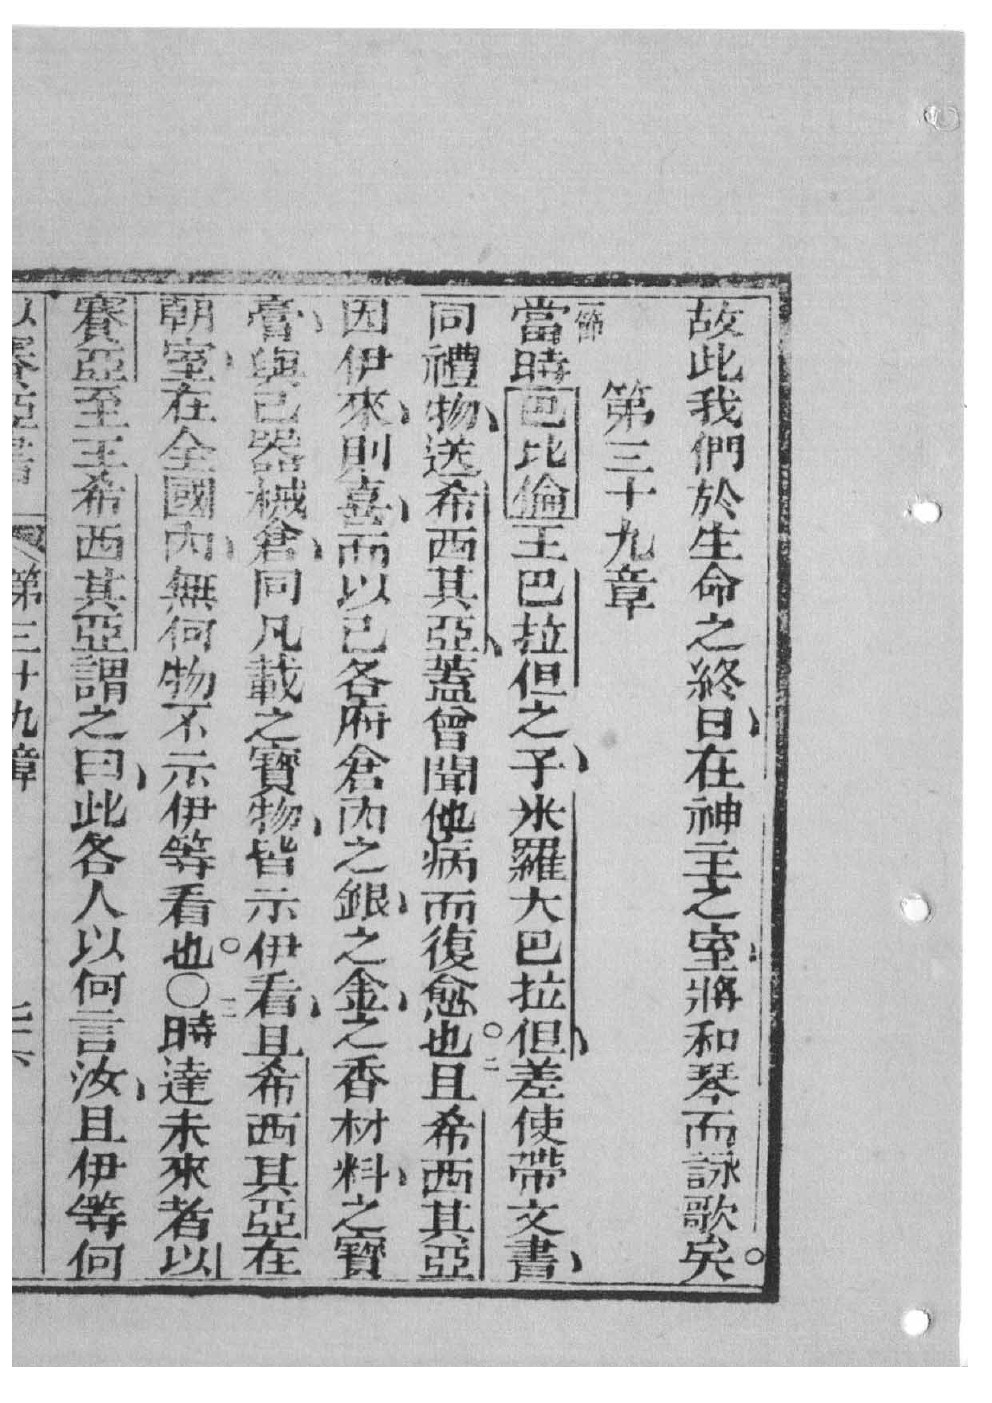 故此我們於生命之終日在神主之室將和琴而詠歌矣。
第三十九章
一節當時巴比倫王巴拉但之子米羅大巴拉但差使帶文書
同禮物送希西其亞蓋曾聞他病而復愈也。二且希西其亞
因伊來則喜而以己各府倉內之銀之金之香材料之寶
膏與己器械倉同凡載之寶物皆示伊看且希西其亞在
朝室在全國內無何物不示伊等看也。〇三時達未來者以
賽亞至王希西其亞謂之曰此各人以何言汝且伊等何
以賽亞書 第三十九章 七六